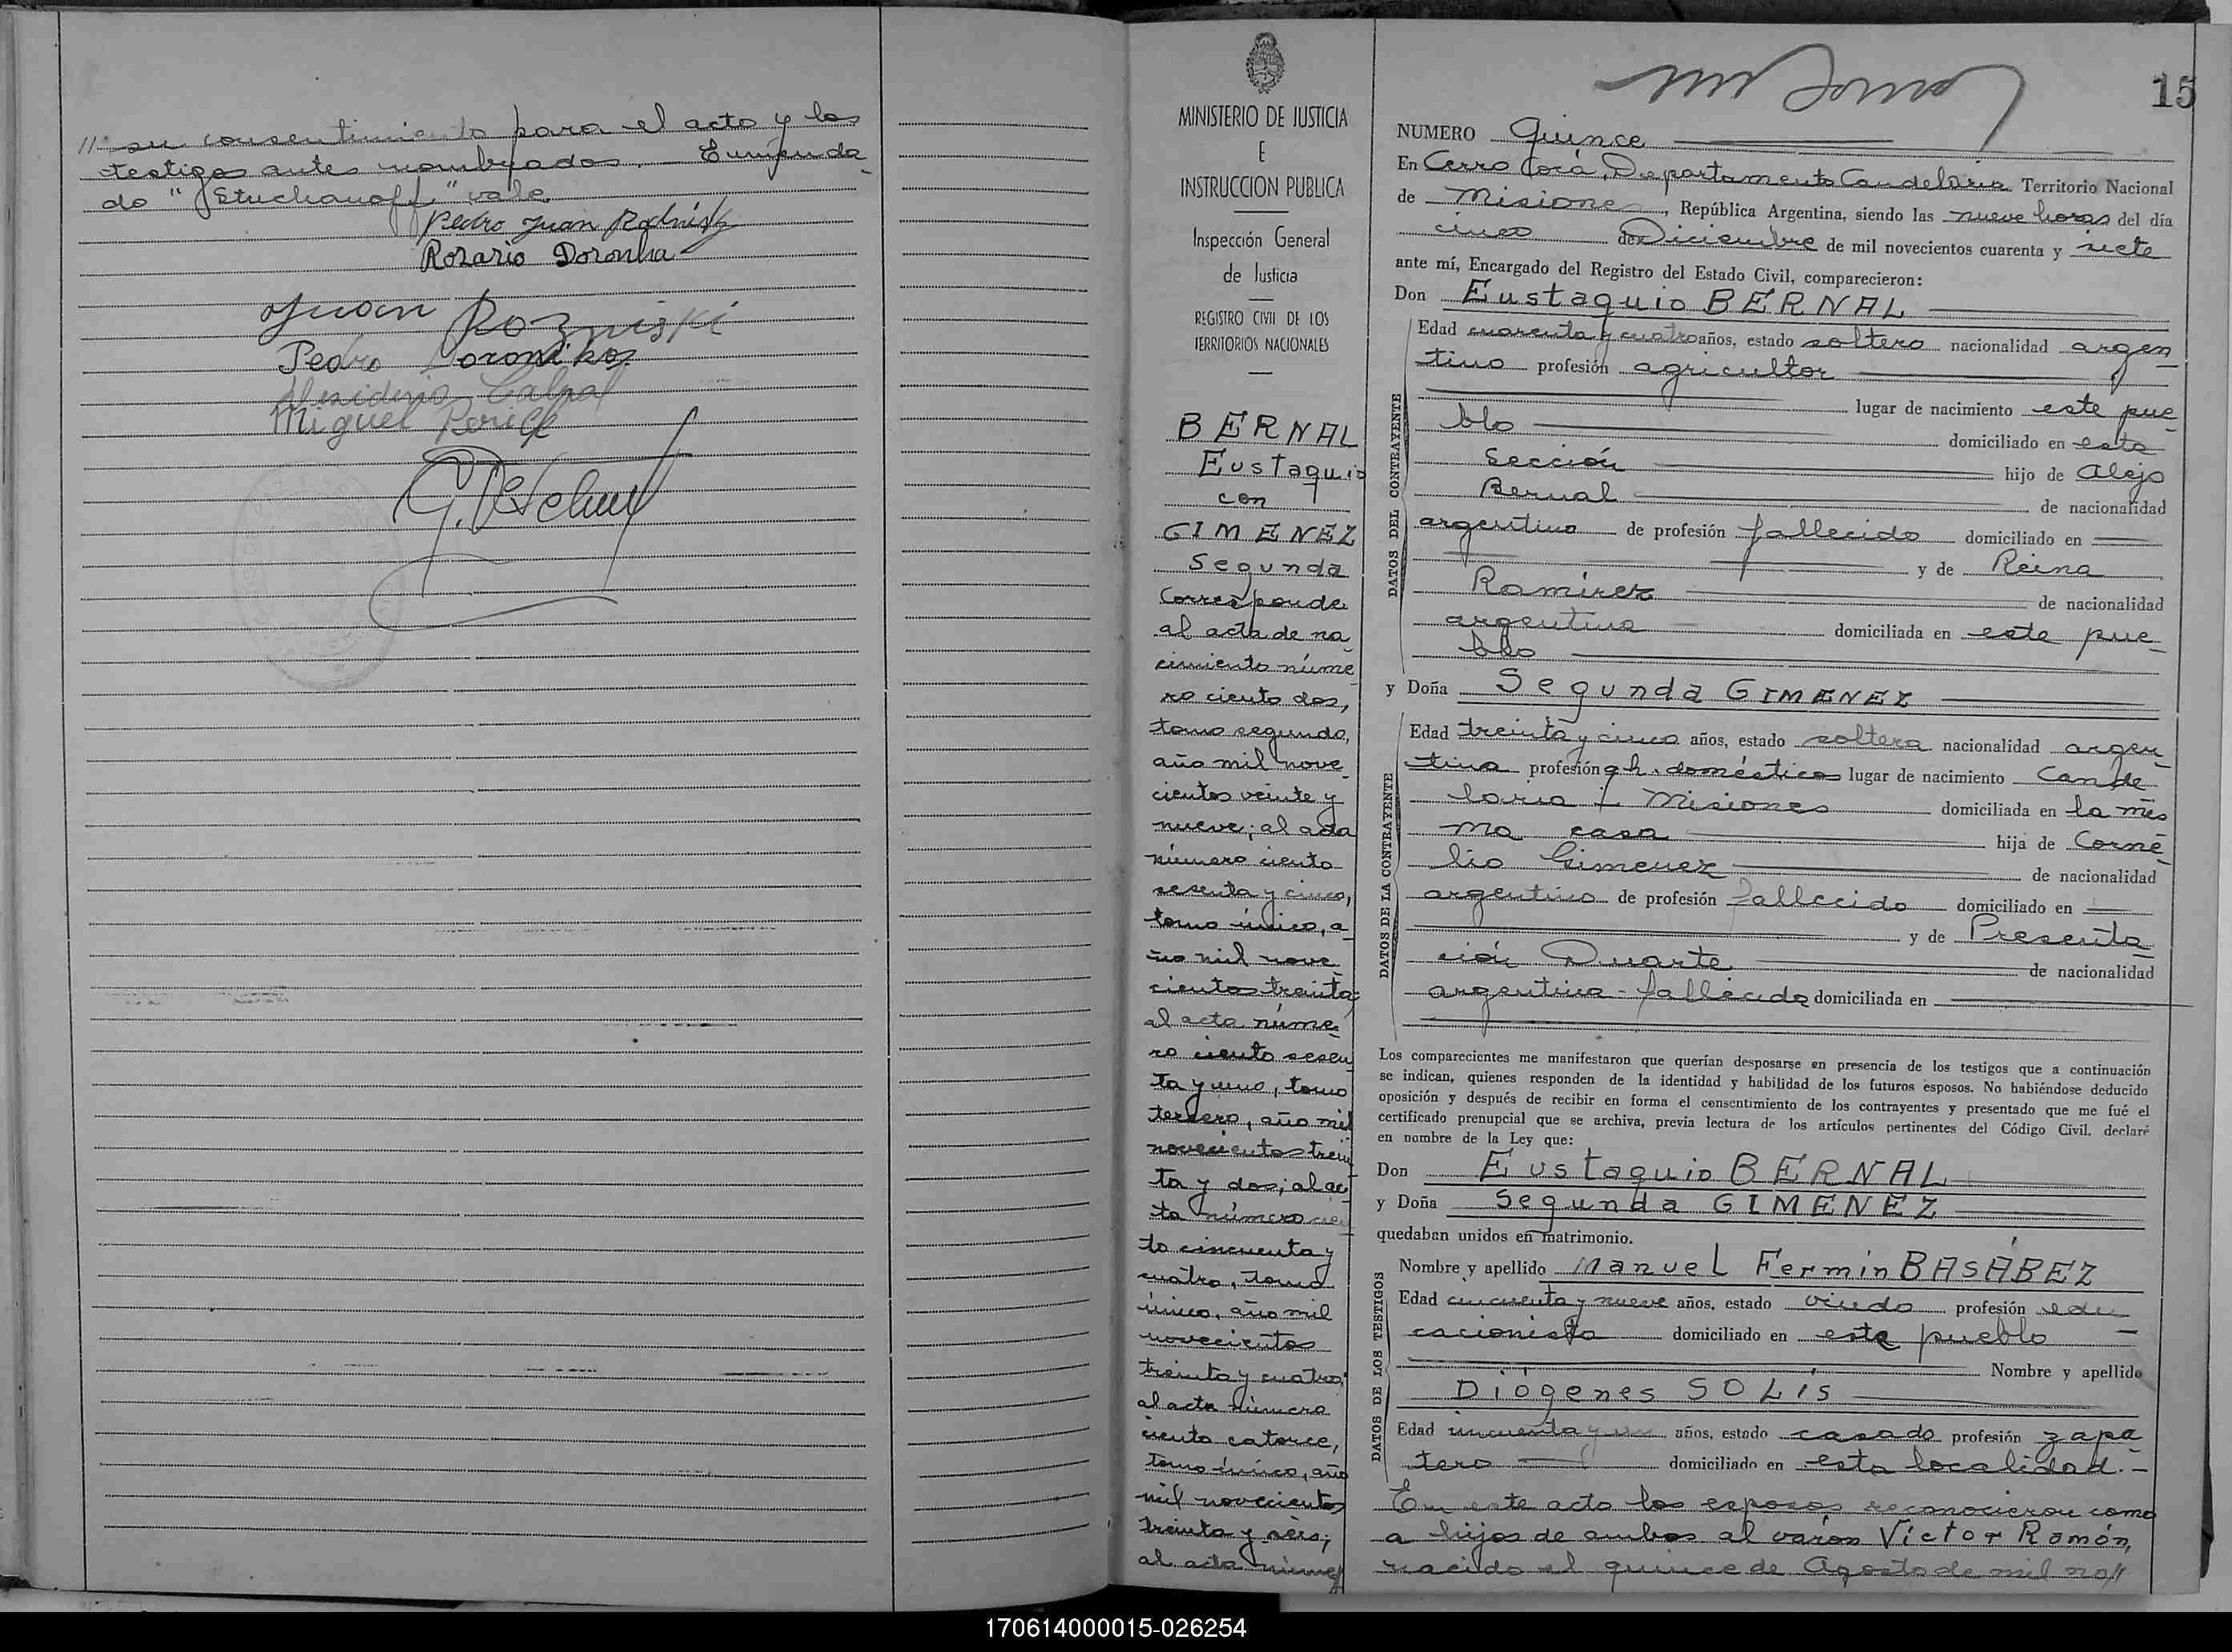 // su consentimiento para el acto y los
testigos antes nombrados. — Enmenda-
do "Stuchanoff" vale
Pedro Juan
Rosario Doronha
Juan Rozniski
Pedro
Cabral
Miguel
MINISTERIO DE JUSTICIA
E
INSTRUCCION PUBLICA
Inspección General
de Justicia
REGISTRO CIVIL DE LOS
TERRITORIOS NACIONALES
BERNAL
Eustaquio
con
GIMENEZ
Segunda
Corresponde
al acta de na
cimiento núme
ro ciento dos,
tomo segundo,
año mil nove
cientos veinte y
nueve; al acta
número ciento
sesenta y cinco,
tomo único, a
ño mil nove
cientos treinta;
al acta núme
ro ciento sesen
ta y uno, tomo
tercero, año mil
novecientos trein
ta y dos; al ac
ta número cien
to cincuenta y
cuatro, tomo
único, año mil
novecientos
treinta y cuatro;
al acta número
ciento catorce,
tomo único, año
mil novecientos
treinta y seis;
al acta núme//
15
NUMERO Quince
En Cerro Corá, Departamento Candelaria Territorio Nacional
de Misiones, República Argentina, siendo las nueve horas del día
cinco de Diciembre de mil novecientos cuarenta y siete
ante mí, Encargado del Registro del Estado Civil, comparecieron:
Don Eustaquio BERNAL
DATOS DEL CONTRAYENTE
Edad cuarenta y cuatro años, estado soltero nacionalidad argen
tino profesión agricultor
lugar de nacimiento este pue
blo domiciliado en esta
Sección hijo de Alejo
Bernal de nacionalidad
argentino de profesión fallecido domiciliado en
y de Reina
Ramirez de nacionalidad
argentina domiciliada en este pue
blo
y Doña Segunda GIMENEZ
DATOS DE LA CONTRAYENTE
Edad treinta y cinco años, estado soltera nacionalidad argen
tina profesión q h. domésticos lugar de nacimiento Cande
laria - Misiones domiciliada en la mis
ma casa hija de Corne
lio Gimenez de nacionalidad
argentino de profesión fallecido domiciliado en
y de Presenta
ción Duarte de nacionalidad
argentina - fallecida domiciliada en
Los comparecientes me manifestaron que querían desposarse en presencia de los testigos que a continuación
se indican, quienes responden de la identidad y habilidad de los futuros esposos. No habiéndose deducido
oposición y después de recibir en forma el consentimiento de los contrayentes y presentado que me fué el
certificado prenupcial que se archiva, previa lectura de los artículos pertinentes del Código Civil, declaré
en nombre de la Ley que:
Don Eustaquio BERNAL
y Doña Segunda GIMENEZ
quedaban unidos en matrimonio.
DATOS DE LOS TESTIGOS
Nombre y apellido Manuel Fermín BASÁBEZ
Edad cincuenta y nueve años, estado viudo profesión edu
cacionista domiciliado en este pueblo
Nombre y apellido
Diógenes SOLÍS
Edad cincuenta y un años, estado casado profesión zapa
tero domiciliado en esta localidad. —
En este acto los esposos reconocieron como
a hijos de ambos al varón Víctor Ramón,
nacido el quince de Agosto de mil no//
170614000015-026254